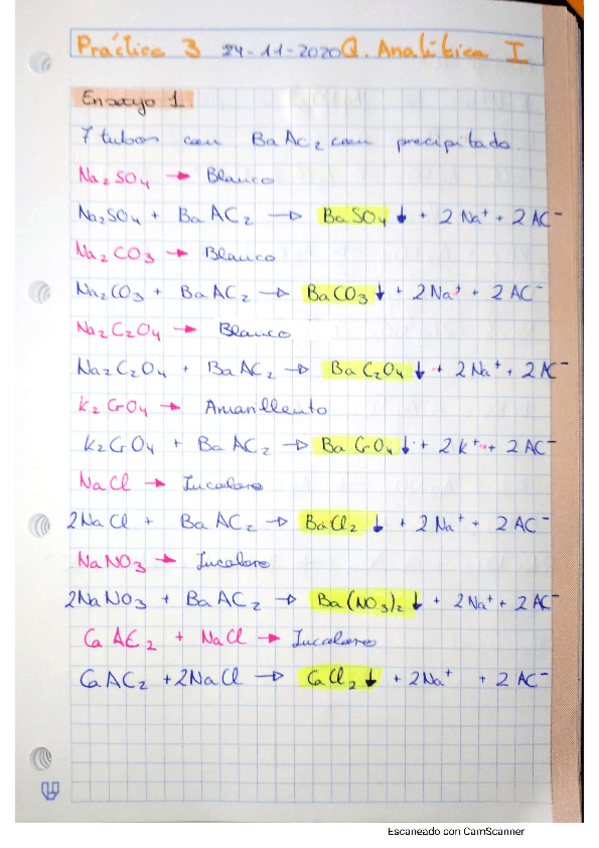 Práctica 3 24-11-2020 Q. Analítica I
Ensayo 1
7 tubos con BaAC₂ con precipitado.
Na₂SO₄ → Blanco
Na₂SO₄ + BaAC₂ → BaSO₄ ↓ + 2Na⁺ + 2AC⁻
Na₂CO₃ → Blanco
Na₂CO₃ + BaAC₂ → BaCO₃ ↓ + 2Na⁺ + 2AC⁻
Na₂C₂O₄ → Blanco
Na₂C₂O₄ + BaAC₂ → BaC₂O₄ ↓ + 2Na⁺ + 2AC⁻
K₂CrO₄ → Amarillento
K₂CrO₄ + BaAC₂ → BaCrO₄ ↓ + 2K⁺ + 2AC⁻
NaCl → Incoloro
2NaCl + BaAC₂ → BaCl₂ ↓ + 2Na⁺ + 2AC⁻
NaNO₃ → Incoloro
2NaNO₃ + BaAC₂ → Ba(NO₃)₂ ↓ + 2Na⁺ + 2AC⁻
CaAC₂ + NaCl → Incoloro
CaAC₂ + 2NaCl → CaCl₂ ↓ + 2Na⁺ + 2AC⁻
Escaneado con CamScanner